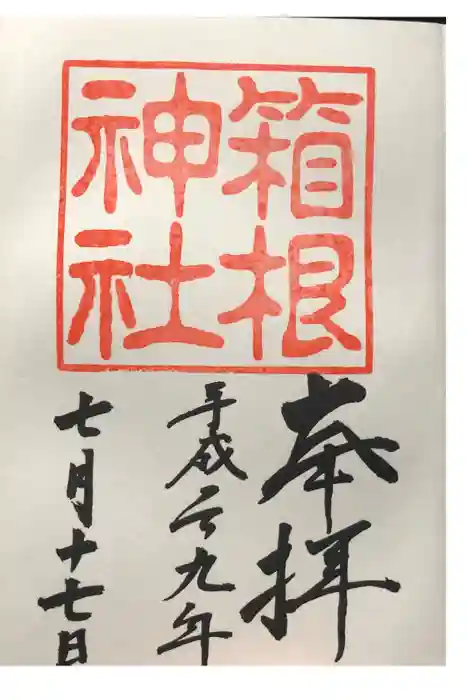 箱根
神社
奉拝
平成二九年
七月十七日